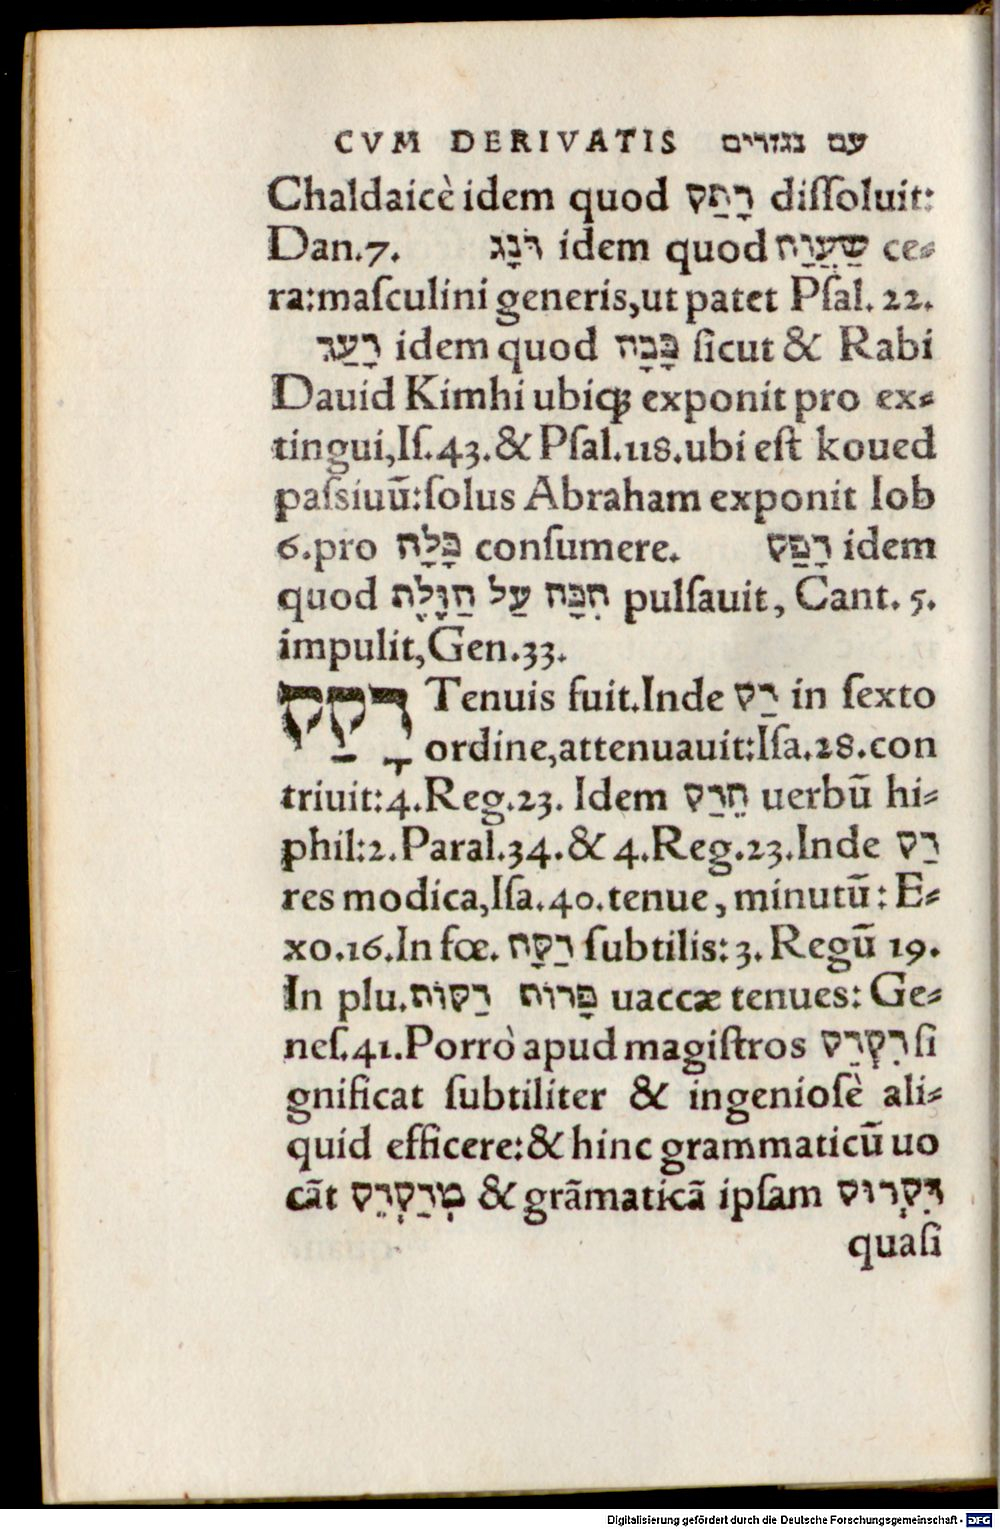 CVM DERIVATIS עם נגזרים
Chaldaicè idem quod דָּחַק diſſoluit:
Dan.7. דּוֹנָג idem quod שַׁעֲוָה ce⸗
ra:maſculini generis,ut patet Pſal. 22.
דָּעַךְ idem quod כָּבָה ſicut & Rabi
Dauid Kimhi ubiqꝫ exponit pro ex⸗
tingui,Iſ.43.& Pſal.118.ubi eſt koued
paſsiuū:ſolus Abraham exponit Iob
6.pro כָּלָה conſumere. דָּפַק idem
quod הִכָּה עַל הַדָּלֶת pulſauit, Cant. 5.
impulit,Gen.33.
דָּקַק Tenuis fuit.Inde דַּק in ſexto
ordine,attenuauit:Iſa.28.con
triuit:4.Reg.23. Idem הֵדַק uerbū hi⸗
phil:2.Paral.34.& 4.Reg.23.Inde דַּק
res modica,Iſa.40.tenue, minutū: E⸗
xo.16.In fœ. דַּקָּה ſubtilis: 3. Regū 19.
In plu. פָּרוֹת דַּקּוֹת uaccæ tenues: Ge⸗
neſ.41.Porrò apud magiſtros דִּקְדֵּק ſi
gnificat ſubtiliter & ingenioſè ali⸗
quid efficere:& hinc grammaticū uo
cāt מְדַקְדֵּק & grāmaticā ipſam דִּקְדּוּק
quaſi
Digitalisierung gefördert durch die Deutsche Forschungsgemeinschaft - DFG